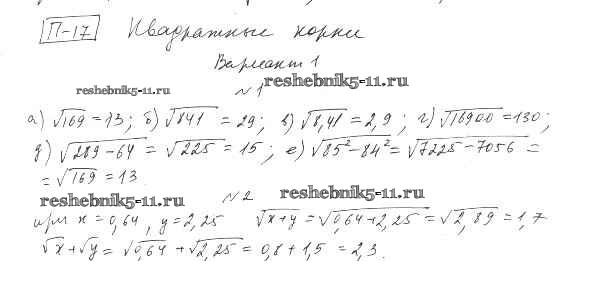 П-17 Квадратные корни
Вариант 1
reshebnik5-11.ru №1 reshebnik5-11.ru
а) √169 = 13; б) √841 = 29; в) √8,41 = 2,9; г) √16900 = 130;
д) √289-64 = √225 = 15; е) √85²-84² = √7225-7056 =
= √169 = 13
reshebnik5-11.ru №2 reshebnik5-11.ru
при x = 0,64, y = 2,25 √x+y = √0,64+2,25 = √2,89 = 1,7
√x + √y = √0,64 + √2,25 = 0,8 + 1,5 = 2,3.